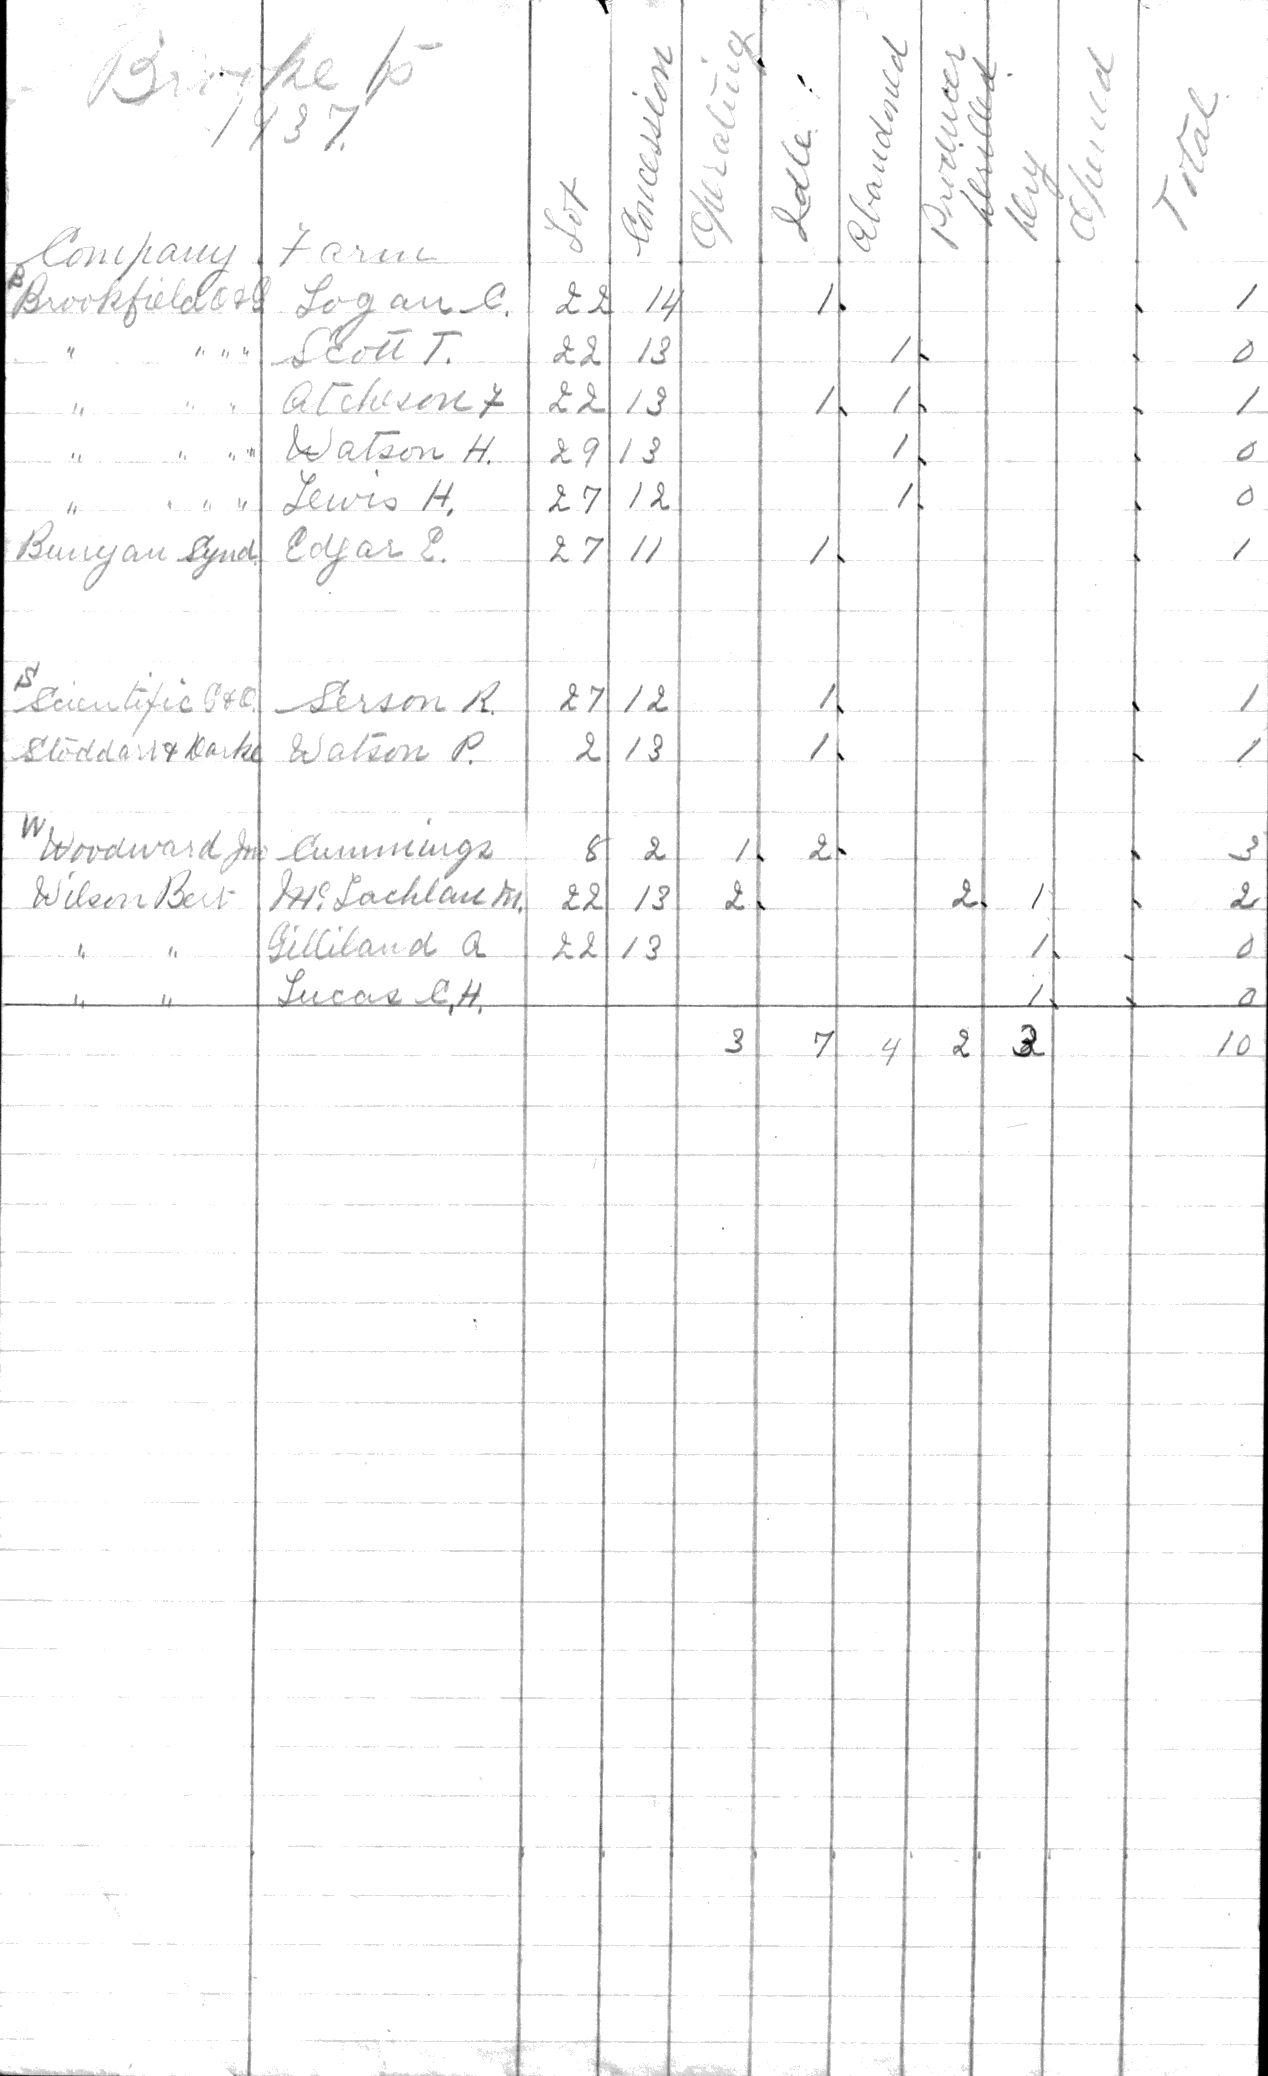 Brooke Tp
1937.
Company Farm Lot Concession Operating Idle Abandoned Producer Drilled Dry Opened Total
B
Brookfield O & G Logan C. 22 14 1 1
" " " " Scott T. 22 13 1 0
" " " Atcheson F 22 13 1 1 1
" " " " Watson H. 29 13 1 0
" " " " Lewis H. 27 12 1 0
Bunyan Synd. Edgar E. 27 11 1 1
S
Scientific G & O. Serson R. 27 12 1 1
Stoddart & Darke Watson P. 2 13 1 1
W
Woodward Jno Cummings 8 2 1 2 3
Wilson Bert Mc. Lachlan M. 22 13 2 2 1 2
" " Gilliland A 22 13 1 0
" " Lucas C.H. 1 0
3 7 4 2 3 10